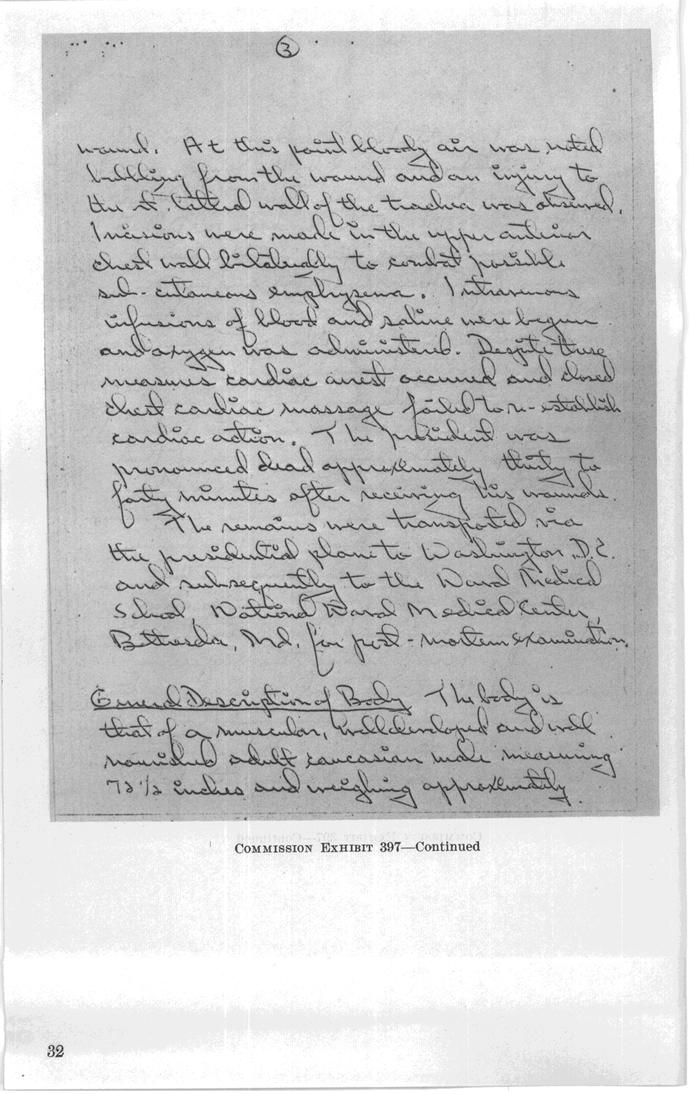 3
wound. At this point bloody air was noted
bubbling from the wound and an injury to
the rt. lateral wall of the trachea was observed.
Incisions were made in the upper anterior
chest wall bilaterally to combat possible
sub-cutaneous emphysema. Intravenous
infusions of blood and saline were begun
and oxygen was administered. Despite these
measures cardiac arrest occurred and closed
chest cardiac massage failed to re-establish
cardiac action. The president was
pronounced dead approximately thirty to
forty minutes after receiving his wounds.
The remains were transported via
the presidential plane to Washington, D.C.
and subsequently to the Naval Medical
School, National Naval Medical Center,
Bethesda, Md. for post-mortem examination.
General Description of Body The body is
that of a muscular, well developed and well
nourished adult caucasian male measuring
72 1/2 inches and weighing approximately
COMMISSION EXHIBIT 397—Continued
32